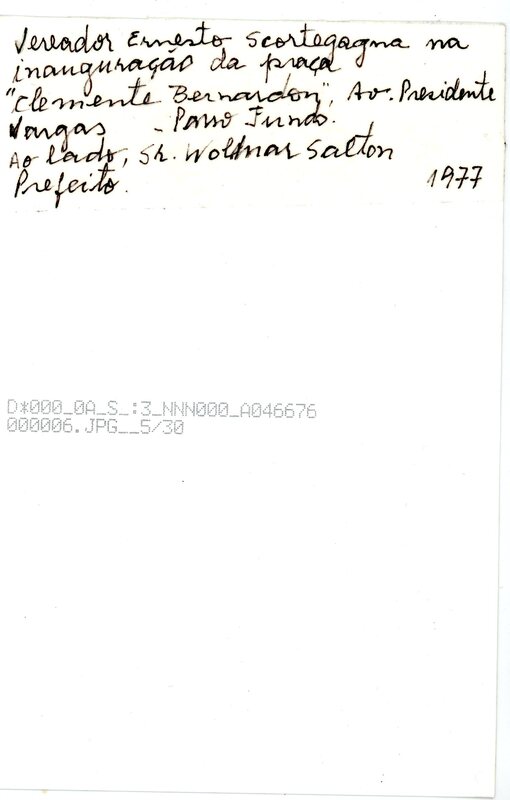 Vereador Ernesto Scortegagna na
inauguração da praça
"Clemente Bernardon", Av. Presidente
Vargas - Passo Fundo.
Ao lado, Sr. Wolmar Salton
Prefeito. 1977
D*000_0A_S_:3_NNN000_A046676
000006.JPG__5/30